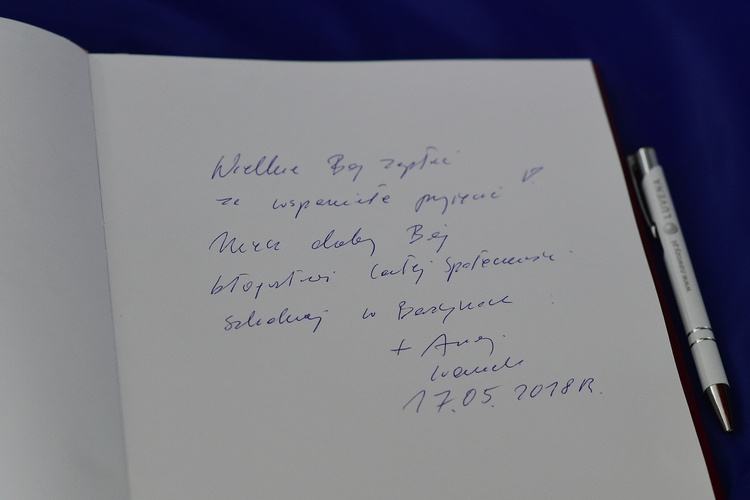 Wielkie Bóg zapłać
za wspaniałe przyjęcie
Niech dobry Bóg
błogosławi całej społeczności
szkolnej w
+ Andrzej
17.05.2018 R.
LUVENA
www.luvena.pl